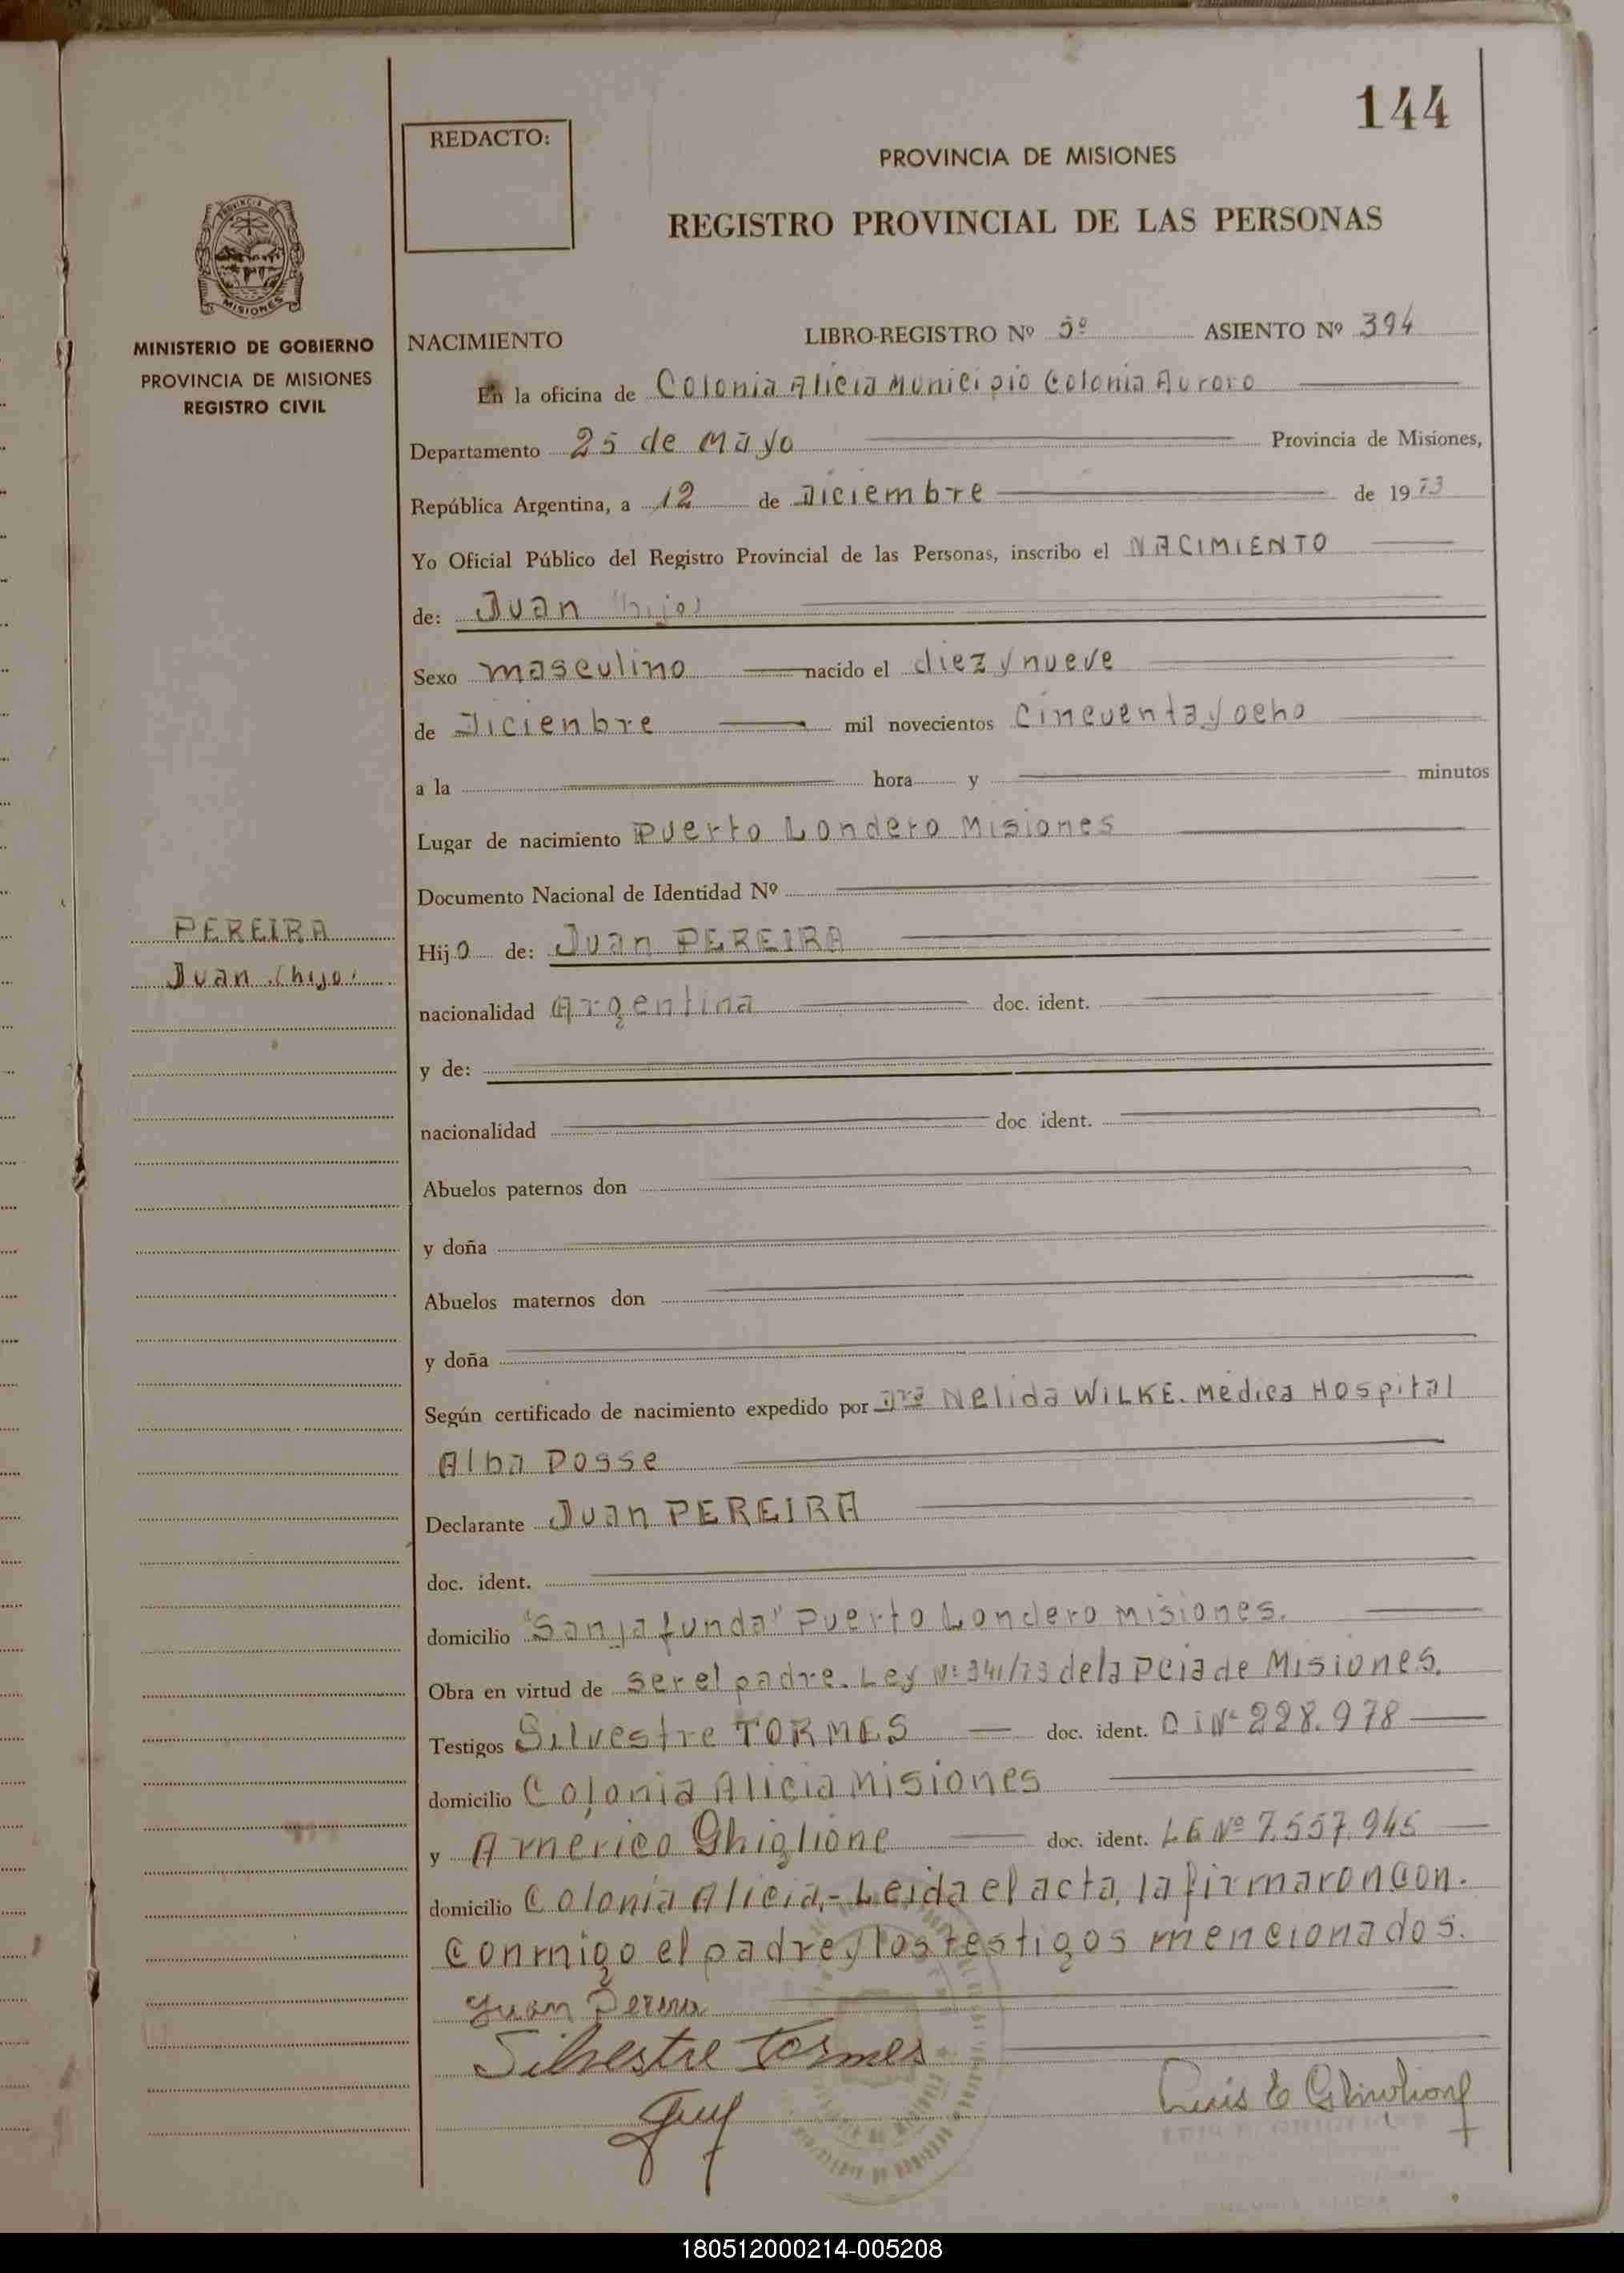 144
REDACTO:
PROVINCIA DE MISIONES
REGISTRO PROVINCIAL DE LAS PERSONAS
PROVINCIA DE
MISIONES
MINISTERIO DE GOBIERNO
PROVINCIA DE MISIONES
REGISTRO CIVIL
NACIMIENTO LIBRO-REGISTRO Nº 5º ASIENTO Nº 394
En la oficina de Colonia Alicia Municipio Colonia Aurora
Departamento 25 de Mayo Provincia de Misiones,
República Argentina, a 12 de Diciembre de 1973
Yo Oficial Público del Registro Provincial de las Personas, inscribo el NACIMIENTO
de: Juan (hijo)
Sexo masculino nacido el diez y nueve
de Dicienbre mil novecientos Cincuenta y ocho
a la hora y minutos
Lugar de nacimiento Puerto Londero Misiones
Documento Nacional de Identidad Nº
PEREIRA
Juan (hijo)
Hijo de: Juan PEREIRA
nacionalidad Argentina doc. ident.
y de:
nacionalidad doc ident.
Abuelos paternos don
y doña
Abuelos maternos don
y doña
Según certificado de nacimiento expedido por Dra Nelida WILKE. Medica Hospital
Alba Posse
Declarante Juan PEREIRA
doc. ident.
domicilio "Sanja funda" Puerto Londero Misiones.
Obra en virtud de ser el padre. Ley Nº 341/73 de la Pcia de Misiones.
Testigos Silvestre TORMES doc. ident. C I Nº 228.978
domicilio Colonia Alicia Misiones
y Americo Ghiglione doc. ident. L E Nº 7.557.945
domicilio Colonia Alicia.- Leida el acta, la firmaron con.
conmigo el padre y los testigos mencionados.
Juan Pereira
Silvestre Tormes
Luis E Ghiglione
180512000214-005208